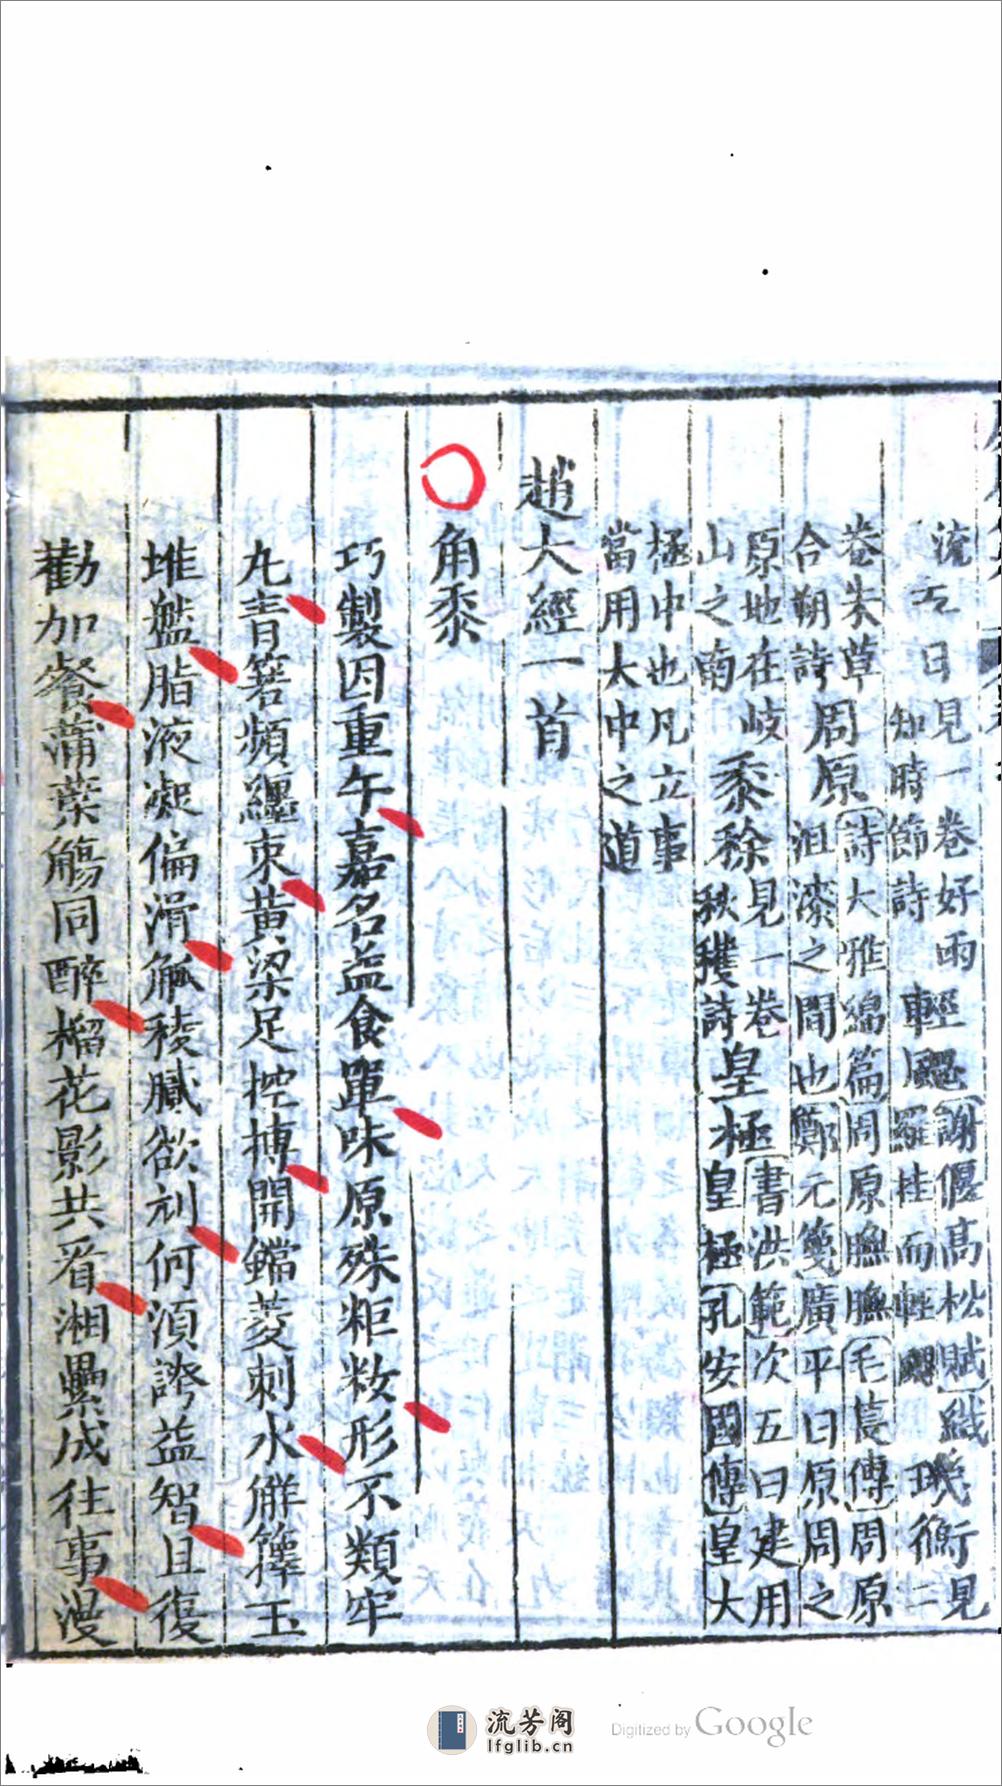 流云日見一卷好雨知時節詩輕颸謝偃高松賦織羅桂而輕颸璣衡見二
卷朱草合朔詩周原詩大雅綿篇周原膴膴毛萇傳周原沮漆之間也鄭元箋廣平曰原周之
原地在岐山之南黍稌見一卷秋穫詩皇極書洪範次五曰建用皇極孔安國傳皇大
極中也凡立事當用大中之道
趙大經一首
角黍
巧製因重午嘉名益食單味原殊粔籹形不類牢
丸青箬頻纏束黃粱足控摶開鐺菱刺水解籜玉
堆盤脂液凝偏滑觚稜膩欲刓何須誇益智且復
勸加餐蒲葉觴同醉榴花影共看湘纍成往事漫
流芳阁
lfglib.cn
Digitized by Google